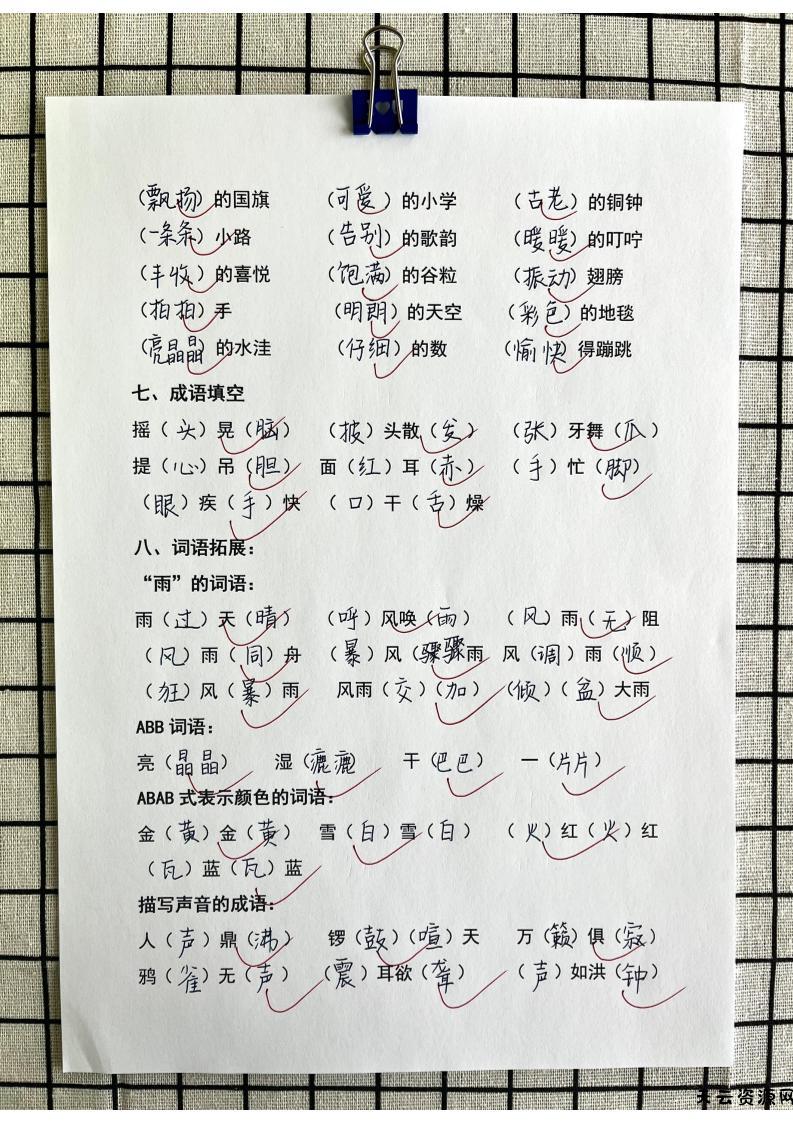 （飘扬）的国旗 （可爱）的小学 （古老）的铜钟
（一条条）小路 （告别）的歌韵 （暖暖）的叮咛
（丰收）的喜悦 （饱满）的谷粒 （振动）翅膀
（拍拍）手 （明朗）的天空 （彩色）的地毯
（亮晶晶）的水洼 （仔细）的数 （愉快）得蹦跳
七、成语填空
摇（头）晃（脑） （披）头散（发） （张）牙舞（爪）
提（心）吊（胆） 面（红）耳（赤） （手）忙（脚）
（眼）疾（手）快 （口）干（舌）燥
八、词语拓展：
“雨”的词语：
雨（过）天（晴） （呼）风唤（雨） （风）雨（无）阻
（风）雨（同）舟 （暴）风（骤骤雨 风（调）雨（顺）
（狂）风（暴）雨 风雨（交）（加） （倾）（盆）大雨
ABB 词语：
亮（晶晶） 湿（漉漉） 干（巴巴） 一（片片）
ABAB 式表示颜色的词语：
金（黄）金（黄） 雪（白）雪（白） （火）红（火）红
（瓦）蓝（瓦）蓝
描写声音的成语：
人（声）鼎（沸） 锣（鼓）（喧）天 万（籁）俱（寂）
鸦（雀）无（声） （震）耳欲（聋） （声）如洪（钟）
天云资源网